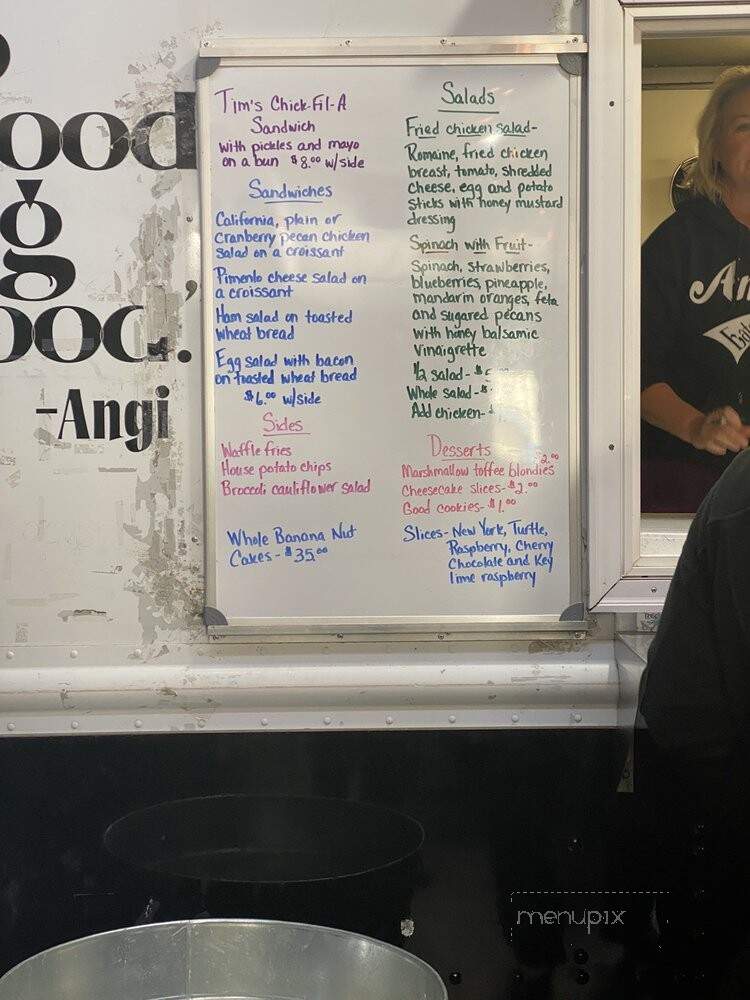 ood
g
ood.
-Angi
Tim's Chick-Fil-A
Sandwich
with pickles and mayo
on a bun $8.00 w/side
Sandwiches
California, plain or
cranberry pecan chicken
salad on a croissant
Pimento cheese salad on
a croissant
Ham salad on toasted
wheat bread
Egg salad with bacon
on toasted wheat bread
$6.00 w/side
Sides
Waffle fries
House potato chips
Broccoli cauliflower salad
Whole Banana Nut
Cakes - $35.00
Salads
Fried chicken salad-
Romaine, fried chicken
breast, tomato, shredded
cheese, egg and potato
sticks with honey mustard
dressing
Spinach with Fruit-
Spinach, strawberries,
blueberries, pineapple,
mandarin oranges, feta
and sugared pecans
with honey balsamic
vinaigrette
1/2 salad - $
Whole salad - $
Add chicken-
Desserts
$2.00
Marshmallow toffee blondies
Cheesecake slices - $2.00
Good cookies - $1.00
Slices - New York, Turtle,
Raspberry, Cherry
Chocolate and Key
lime raspberry
An
menupix